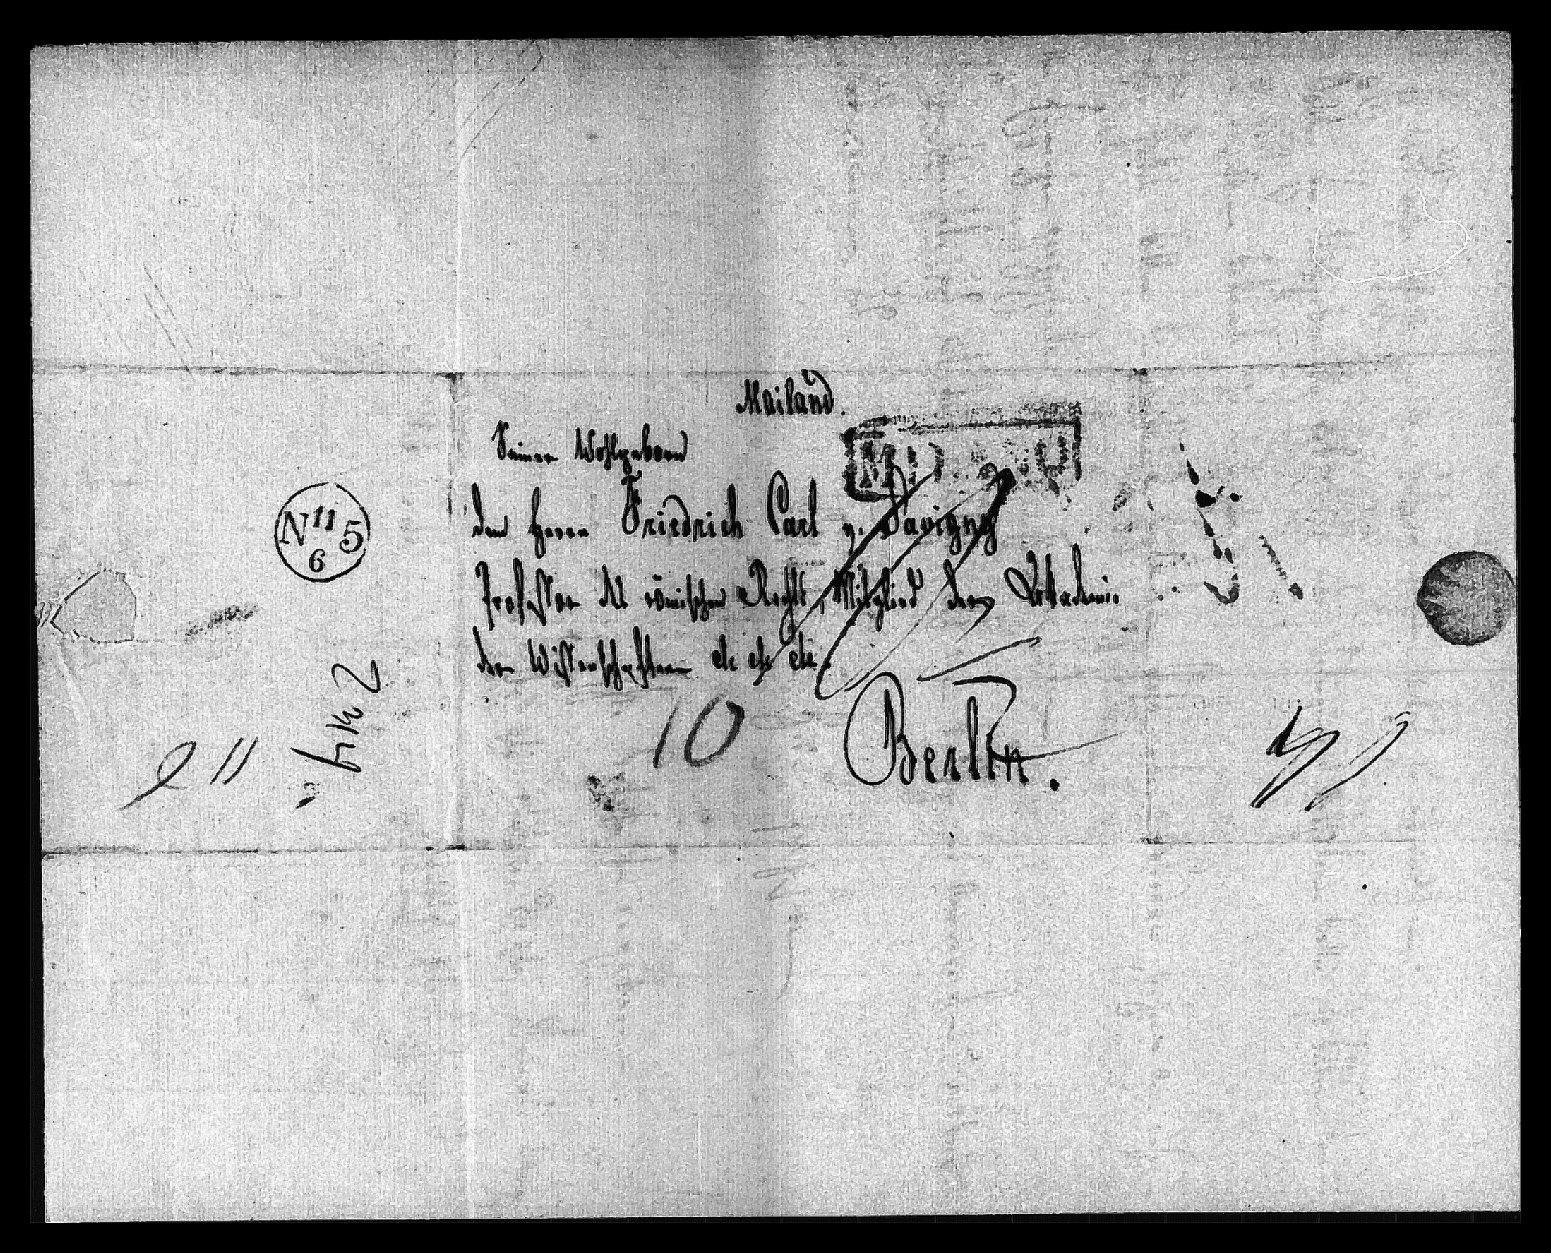 Mailand.
Seiner Wohlgeborn
dem Herrn Friedrich Carl v. Savigny
Professor des römischen Rechts, Mitglied der Akademie
der Wissenschaften etc etc etc.
10
Berlin.
N 11 5
6